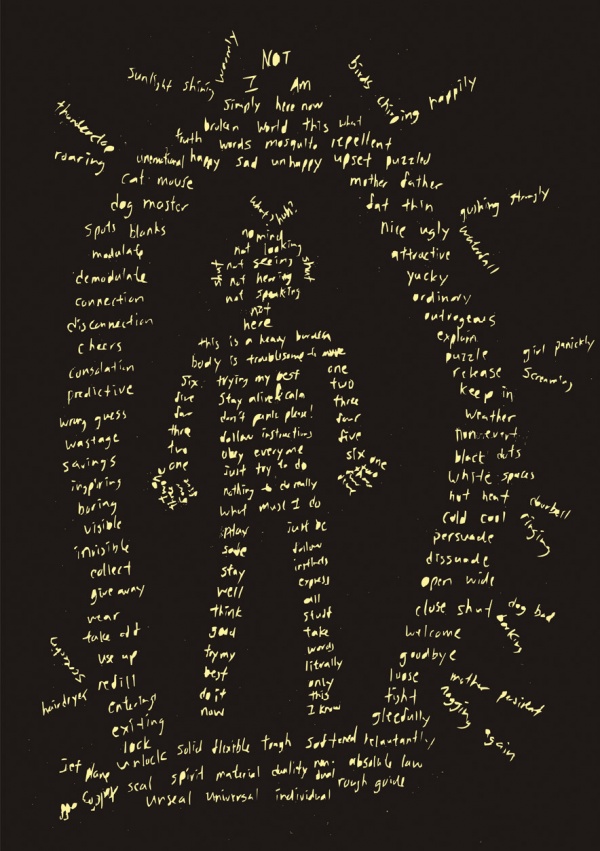 NOT
I Am
Simply here now
broken world this what
truth words mosquito repellent
unemotional happy sad unhappy upset puzzled
sunlight shining warmly
birds chirping happily
thunderclap
roaring
cat mouse
dog master
spots blanks
modulate
demodulate
connection
disconnection
cheers
consolation
predictive
wrong guess
wastage
savings
inspiring
boring
visible
invisible
collect
give away
wear
take off
use up
refill
entering
exiting
lock
unlock solid flexible tough softened reluctantly
seal spirit material duality non-dual absolute law
unseal universal individual rough guide
mother father
fat thin
nice ugly
attractive
yucky
ordinary
outrageous
explain
puzzle
release
keep in
weather
non-event
black dots
white spaces
hot heat
cold cool
persuade
dissuade
open wide
close shut
welcome
goodbye
loose
tight
gleefully
gushing strongly
waterfall
girl panickly
screaming
doorbell
ringing
dog bad
barking
mother persient
nagging
again
hairdryer
jet plane
what's huh?
no mind
not looking
shut not seeing shut
not hearing
not speaking
not
here
this is a heavy burden
body is troublesome to move
trying my best
stay alive
don't panic please!
follow instructions
obey everyone
just try to do
nothing to do really
what must I do
six
five
four
three
two
one
one
two
three
four
five
six one
play
safe
stay
well
think
good
try my
best
do it
now
just be
follow
instincts
express
all
stuff
take
words
literally
only
this
I know